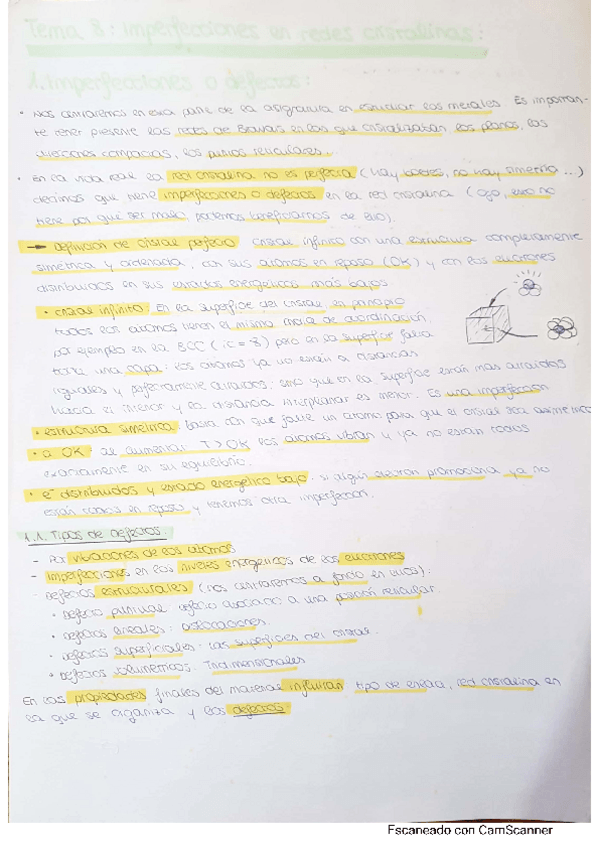 Tema 8: imperfecciones en redes cristalinas:
1. Imperfecciones o defectos:
• Nos centraremos en esta parte de la asignatura en estudiar los metales. Es importan-
te tener presente las redes de Bravais en las que cristalizaban, los planos, las
direcciones compactas, los puntos reticulares.
• En la vida real la red cristalina no es perfecta (hay bordes, no hay simetría ...)
decimos que tiene imperfecciones o defectos en la red cristalina (ojo, esto no
tiene por qué ser malo, podemos beneficiarnos de ello).
→ definición de cristal perfecto: cristal infinito con una estructura completamente
simétrica y ordenada, con sus átomos en reposo (0K) y con los electrones
distribuidos en sus estados energéticos más bajos
• cristal infinito: En la superficie del cristal, en principio
todos los átomos tienen el mismo índice de coordinación,
por ejemplo en la BCC (ic = 8) pero en la superficie falta
toda una capa: los átomos ya no están a distancias
iguales y perfectamente atraídos, sino que en la superficie están más atraídos
hacia el interior y la distancia interplanar es menor. Es una imperfección
• estructura simétrica: basta con que falte un átomo para que el cristal sea asimétrico
• a 0K: al aumentar T>0K los átomos vibran y ya no están todos
exactamente en su equilibrio.
• e⁻ distribuidos y estado energético bajo: si algún electrón promociona, ya no
están todos en reposo y tenemos otra imperfección.
1.1. Tipos de defectos.
- Por vibraciones de los átomos
- imperfecciones en los niveles energéticos de los electrones
- Defectos estructurales (nos centraremos a fondo en ellos):
• defecto puntual: defecto asociado a una posición reticular.
• defectos lineales: dislocaciones.
• defectos superficiales: las superficies del cristal.
• defectos volumétricos: Tridimensionales
En las propiedades finales del material influirán tipo de enlace, red cristalina en
la que se organiza y los defectos
Escaneado con CamScanner